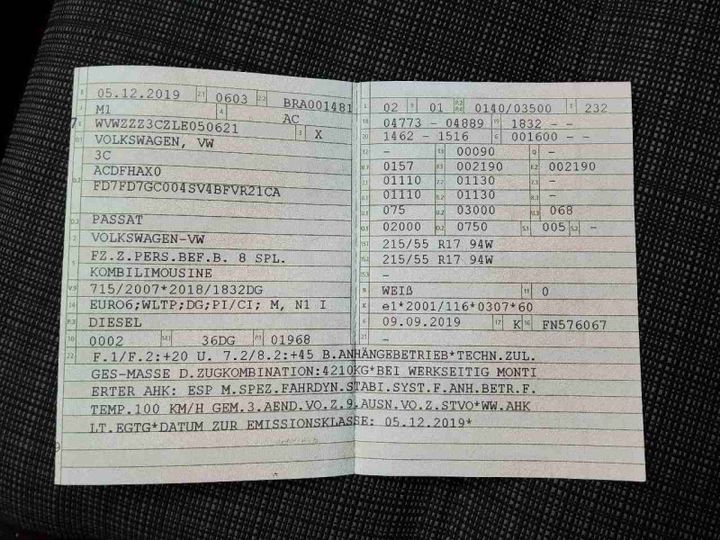 B 05.12.2019 2.1 0603 2.2 BRA001481
J M1 4 AC
E WVWZZZ3CZLE050621 3 X
D.1 VOLKSWAGEN, VW
3C
D.2 ACDFHAX0
FD7FD7GC004SV4BFVR21CA
D.3 PASSAT
2 VOLKSWAGEN-VW
5 FZ.Z.PERS.BEF.B. 8 SPL.
KOMBILIMOUSINE
V.9 715/2007*2018/1832DG
14 EURO6;WLTP;DG;PI/CI; M, N1 I
P.3 DIESEL
10 0002 14.1 36DG P.1 01968
L 02 9 01 P.2 P.4 0140/03500 T 232
18 04773 - 04889 19 1832 - -
20 1462 - 1516 G 001600 - -
12 - 13 00090 Q -
V.7 0157 F.1 002190 F.2 002190
7.1 01110 7.2 01130 7.3 -
8.1 01110 8.2 01130 8.3 -
U.1 075 U.2 03000 U.3 068
O.1 02000 O.2 0750 S.1 005 S.2 -
15.1 215/55 R17 94W
15.2 215/55 R17 94W
15.3 -
R WEIß 11 0
K e1*2001/116*0307*60
6 09.09.2019 17 K 16 FN576067
21 -
22 F.1/F.2:+20 U. 7.2/8.2:+45 B.ANHÄNGEBETRIEB*TECHN.ZUL.
GES-MASSE D.ZUGKOMBINATION:4210KG*BEI WERKSEITIG MONTI
ERTER AHK: ESP M.SPEZ.FAHRDYN.STABI.SYST.F.ANH.BETR.F.
TEMP.100 KM/H GEM.3.AEND.VO.Z.9.AUSN.VO.Z.STVO*WW.AHK
LT.EGTG*DATUM ZUR EMISSIONSKLASSE: 05.12.2019*